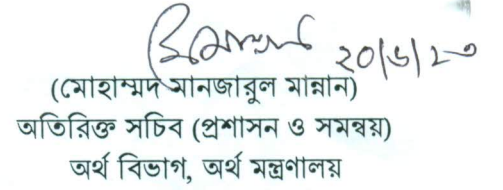 ২০/৬/২৩
(মোহাম্মদ মানজারুল মান্নান)
অতিরিক্ত সচিব (প্রশাসন ও সমন্বয়)
অর্থ বিভাগ, অর্থ মন্ত্রণালয়